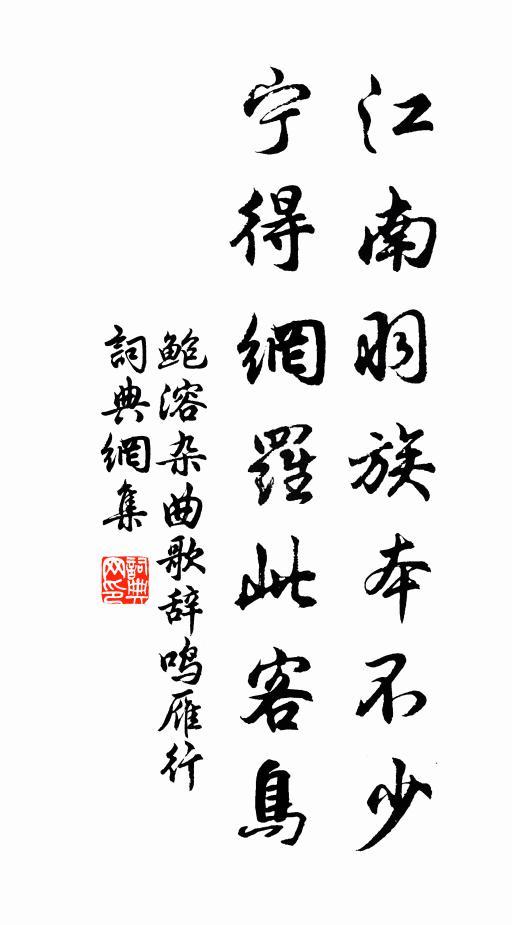 江南羽族本不少
宁得網羅此客鳥
鲍溶杂曲歌辞鸣雁行
詞典網集
詞典网印